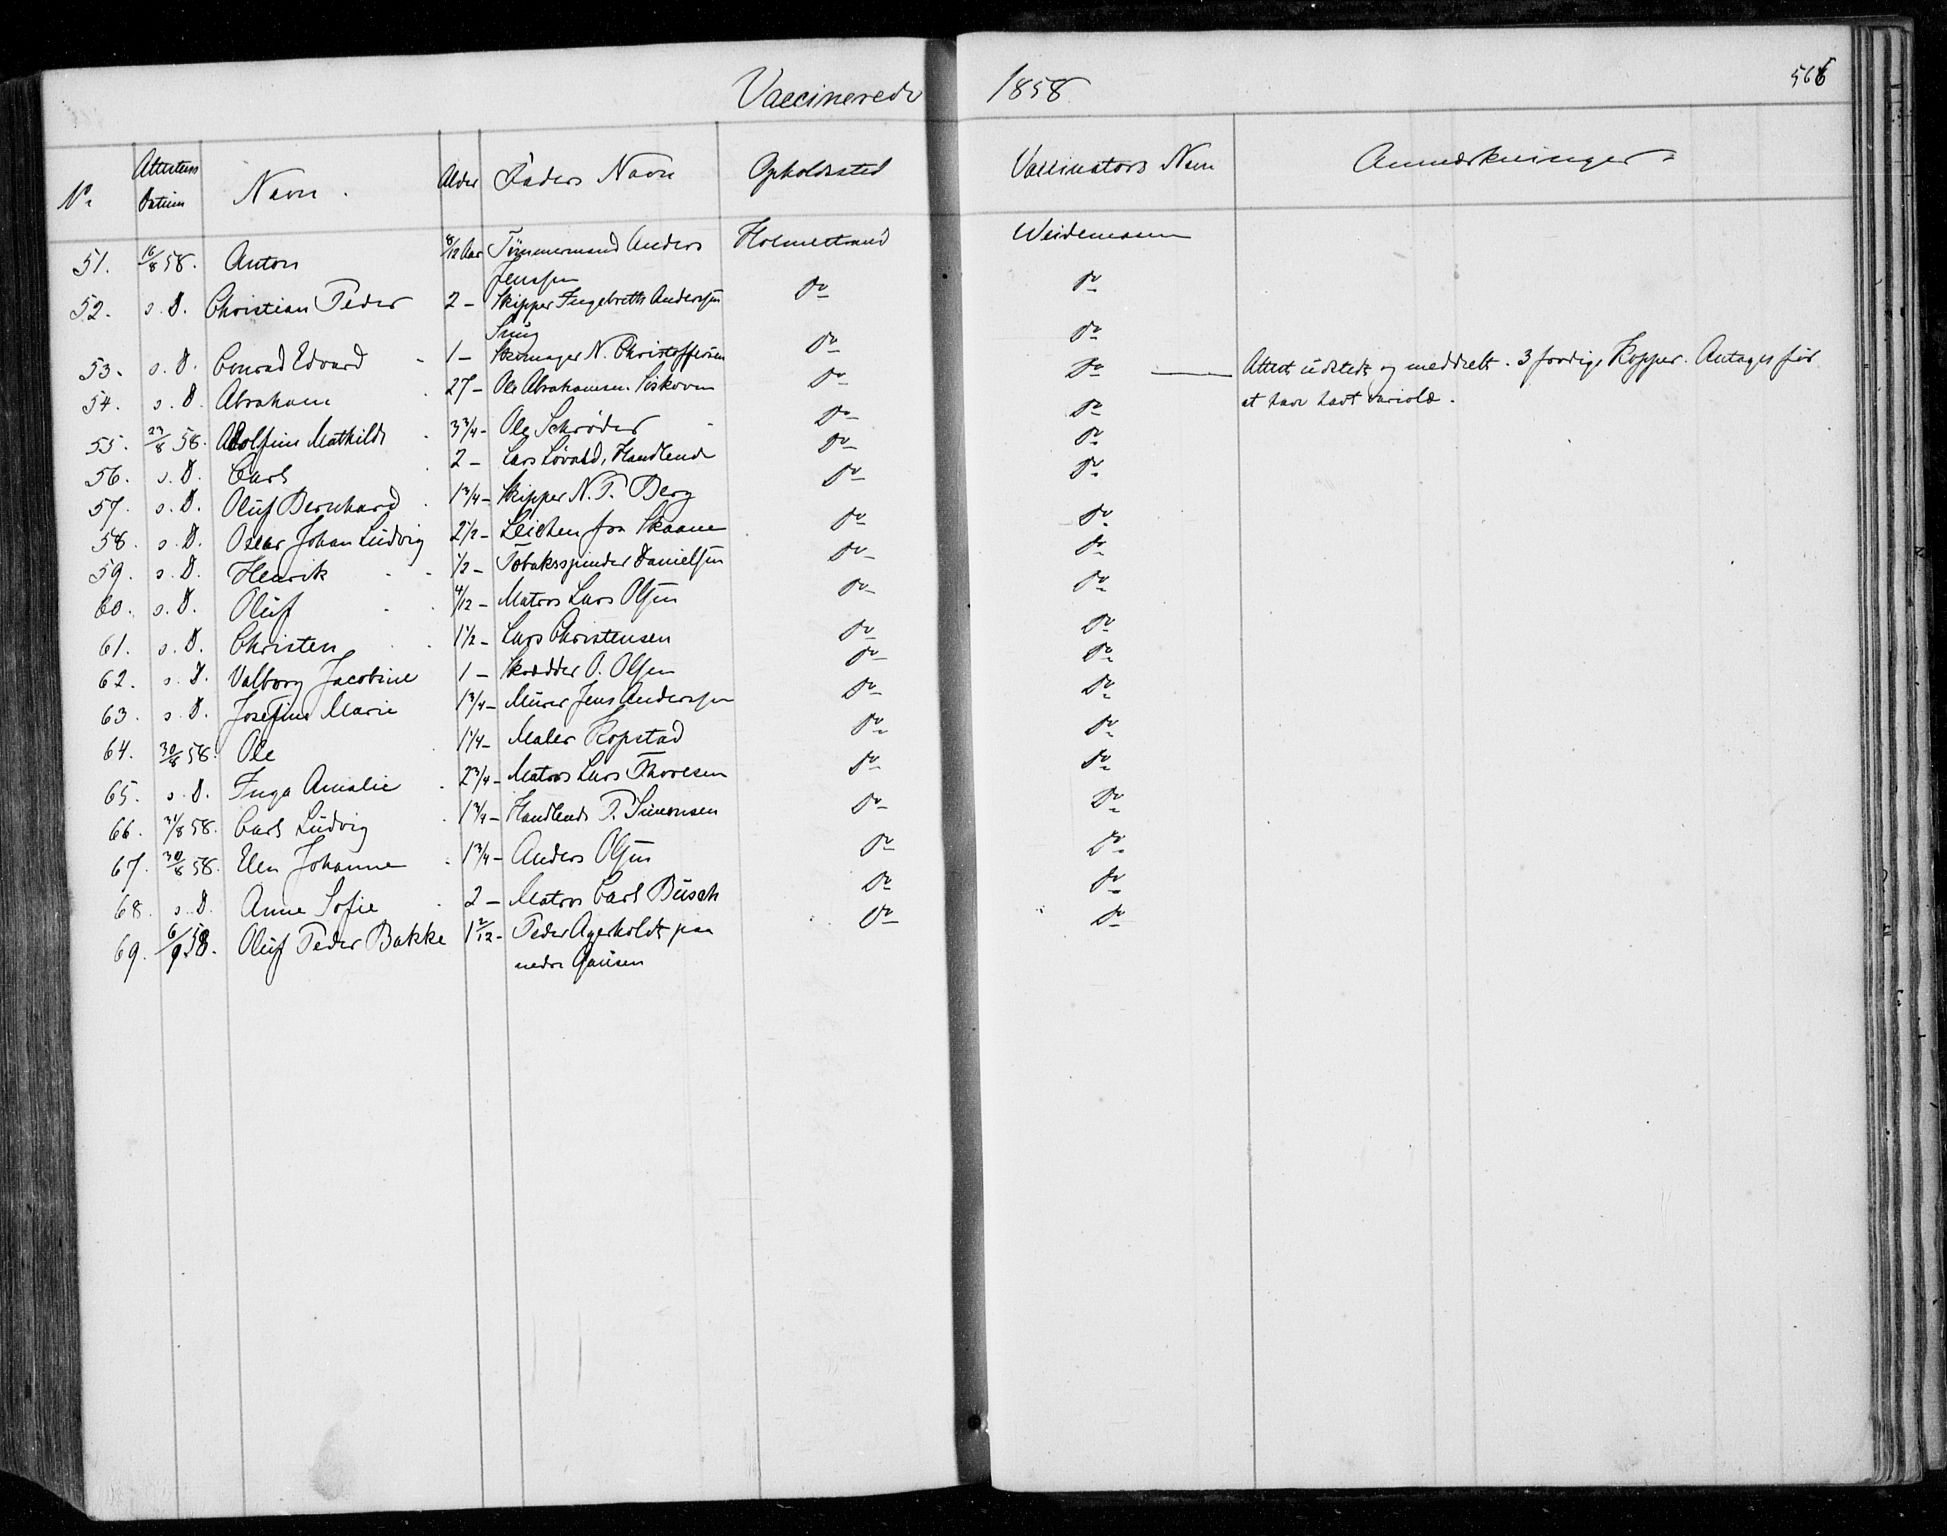 Vaccinerede 1858 566
No Attestens Datum Navn. Alder Faders Navn Opholdssted Vaccinators Navn Anmærkninger
51. 16/8 58. Anton 8/12 Aar Tömmermand Anders Jenssen Holmestrand Weidemann
52. s. D. Christian Peder 2 - Skipper Ingebreth Anderssen Do Do
53. s. D. Conrad Edvard 1 - Skomager N. Christoffersen Do Do
54. s. D. Abraham 27 - Ole Abrahamsen Do Do Attest udstedt og meddelt. 3 Kopper. Antages før
at have havt variolæ.
55. 23/8 58. Adolfine Mathilde 3 3/4 - Ole Schrøder Do Do
56. s. D. Carl 2 - Lars Løvald, Handlende Do Do
57. s. D. Oluf Bernhard 1 3/4 - Skipper N. P. Berg Do Do
58. s. D. Oscar Johan Ludvig 2 1/2 - fra Skaane Do Do
59. s. D. Henrik 1/2 - Tobaksspinder Danielsen Do Do
60. s. D. Oluf 4/12 - Matros Lars Olsen Do Do
61. s. D. Christen 1 1/2 - Lars Christensen Do Do
62. s. D. Valborg Jacobine 1 - Skrædder O. Olsen Do Do
63. s. D. Josefine Marie 1 3/4 - Murer Jens Anderssen Do Do
64. 30/8 58. Ole 1 1/4 - Maler Kopstad Do Do
65. s. D. Inga Amalie 2 3/4 - Matros Lars Thoresen Do Do
66. 31/8 58. Carl Ludvig 1 3/4 - Handlende P. Simonsen Do Do
67. 30/8 58. Elen Johanne 1 3/4 - Anders Olsen Do Do
68. s. D. Anne Sofie 2 - Matros Carl Busch Do Do
69. 6/9 58. Oluf Peder Bakke 1 2/12 - Peder Agerholdt paa Do Do
nedre Gausen